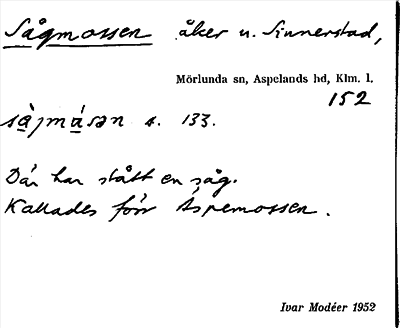 Sågmossen åker u. Sinnerstad,
Mörlunda sn, Aspelands hd, Klm. l.
152
s. 133.
Där har stått en såg.
Kallades förr Äspemossen.
Ivar Modéer 1952